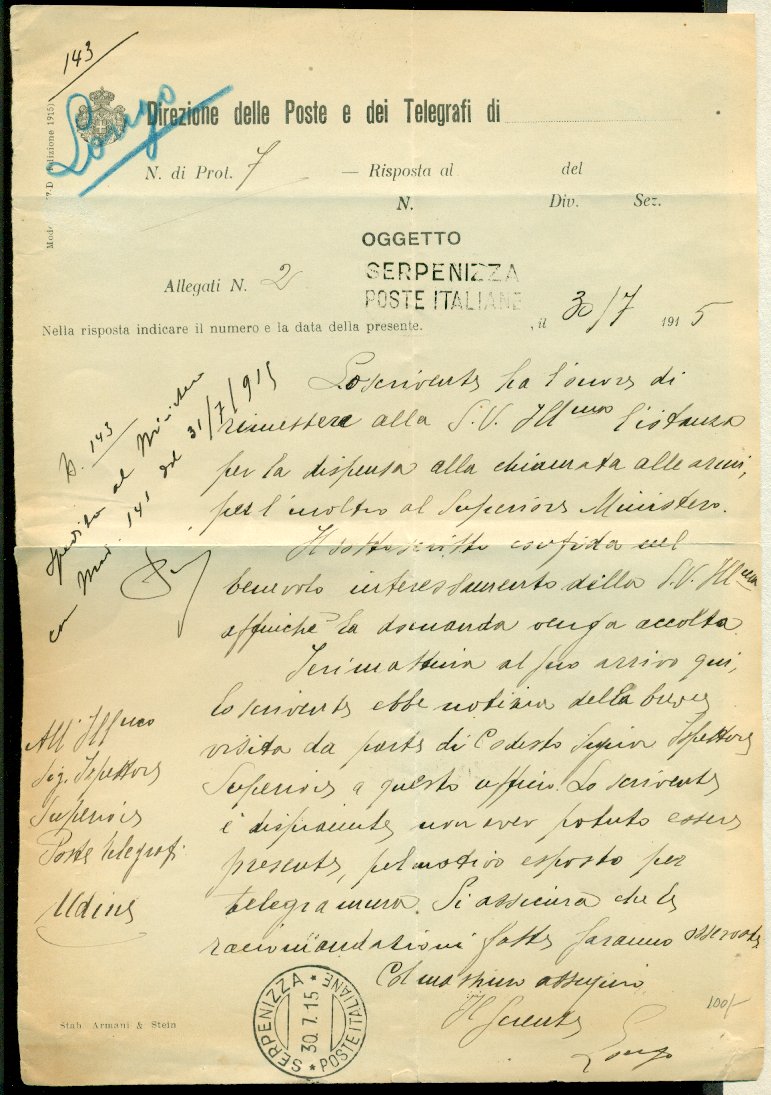 143
Longo
Direzione delle Poste e dei Telegrafi di
N. di Prot. 7 — Risposta al del
N. Div. Sez.
OGGETTO
SERPENIZZA
POSTE ITALIANE
Allegati N. 2
, il 30/7 1915
Nella risposta indicare il numero e la data della presente.
N. 143
spedito al Ministero
con Mod. 141 del 31/7/915
Lo scrivente ha l'onore di
rimettere alla S.V. Ill.ma l'istanza
per la dispensa alla chiamata alle armi,
per l'inoltro al Superiore Ministero.
Il sottoscritto confida nel
benevolo interessamento della S.V. Ill.ma
affinché la domanda venga accolta.
Ieri mattina al suo arrivo qui,
lo scrivente ebbe notizia della breve
visita da parte di Codesto Signor Ispettore
Superiore a questo ufficio. Lo scrivente
è dispiacente, non aver potuto essere
presente, pel motivo esposto per
telegramma. Si assicura che le
raccomandazioni fatte saranno osservate
Col massimo ossequio
Il Gerente
Longo
All'Ill.mo
Sig. Ispettore
Superiore
Poste telegrafi
Udine
SERPENIZZA
30.7.15
POSTE ITALIANE
100/-
Stab. Armani & Stein